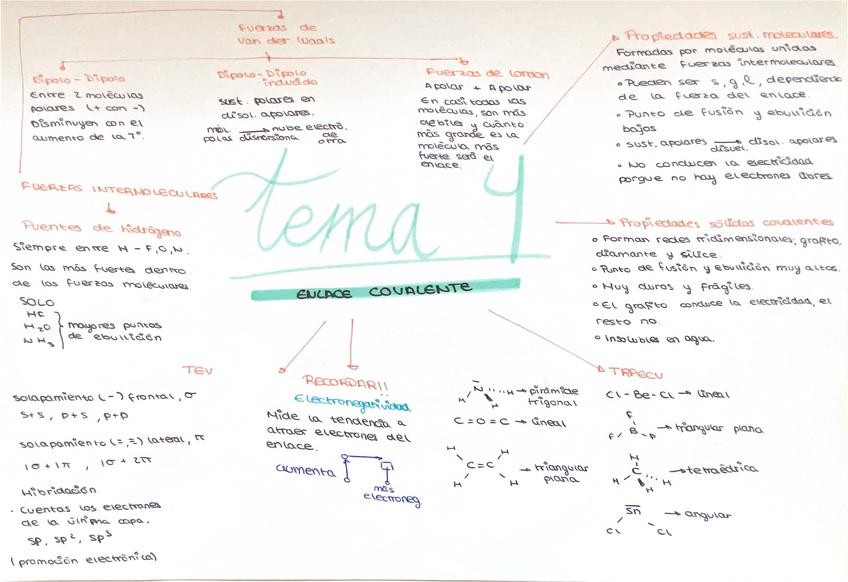 Fuerzas de
Van der Waals
Dipolo-Dipolo
Entre 2 moléculas
polares (+ con -)
Disminuyen con el
aumento de la Tº.
Dipolo-Dipolo
inducido
sust. polares en
disol. apolares.
mol. → nube electró.
polar distorsiona de otra
Fuerzas de London
Apolar + Apolar
En casi todas las
moléculas, son más
débiles y cuánto
más grande es la
molécula más
fuerte será el
enlace.
Propiedades sust. moleculares.
Formadas por moléculas unidas
mediante fuerzas intermoleculares.
• Pueden ser s, g, l, dependiendo
de la fuerza del enlace.
• Punto de fusión y ebullición
bajos
• sust. apolares → disuel. disol. apolares
• No conducen la electricidad
porque no hay electrones libres.
FUERZAS INTERMOLECULARES
Puentes de hidrógeno
Siempre entre H - F, O, N.
Son las más fuertes dentro
de las fuerzas moleculares
SOLO
H₂O
NH₃
mayores puntos
de ebullición
tema 4
ENLACE COVALENTE
Propiedades sólidos covalentes
• Forman redes tridimensionales, grafito,
diamante y sílice.
• Punto de fusión y ebullición muy altos.
• Muy duros y frágiles.
• El grafito conduce la electricidad, el
resto no.
• Insolubles en agua.
TEV
solapamiento (-) frontal, σ
s+s, p+s, p+p
solapamiento (=,≡) lateral, π
1σ+1π, 1σ+2π
Hibridación.
• Cuentas los electrones
de la última capa.
sp, sp², sp³
(promoción electrónica)
RECORDAR!!
Electronegatividad
Mide la tendencia a
atraer electrones del
enlace.
aumenta
más
electroneg
N H H H → pirámide
trigonal
C=O=C → lineal
H H C=C H H → triangular
plana
TRPECV
Cl-Be-Cl → lineal
F F B F → triangular plana
H C H H H → tetraédrica
Sn Cl Cl → angular